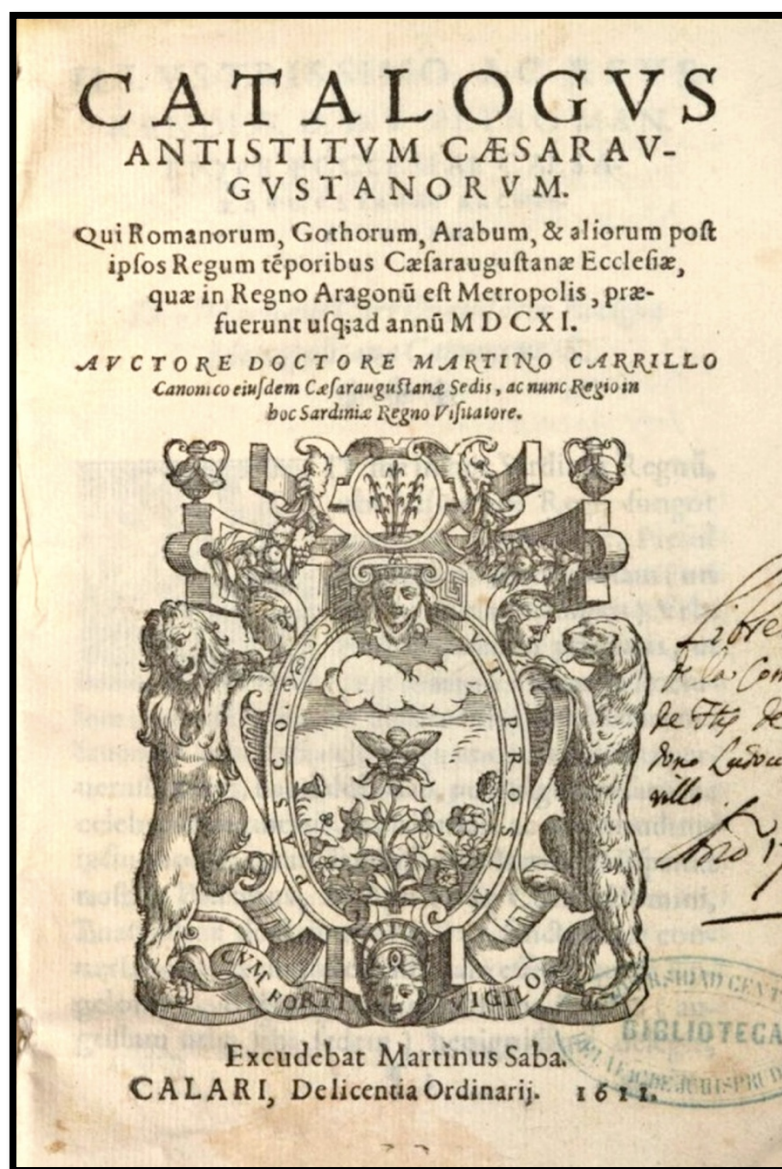 CATALOGVS
ANTISTITVM CÆSARAV-
GVSTANORVM.
Qui Romanorum, Gothorum, Arabum, & aliorum post
ipſos Regum tẽporibus Cæſarauguſtanæ Eccleſiæ,
quæ in Regno Aragonũ eſt Metropolis, præ-
fuerunt uſq;ad annũ MDCXI.
AVCTORE DOCTORE MARTINO CARRILLO
Canonico eiuſdem Cæſarauguſtanæ Sedis, ac nunc Regio in
hoc Sardiniæ Regno Viſitatore.
PASCO. VT PROSI
CVM FORTI VIGILO
Libre
de la Con
de
dono Ludou
villo
Año 17
BIBLIOTECA
Excudebat Martinus Saba.
CALARI, De licentia Ordinarij. 1611.